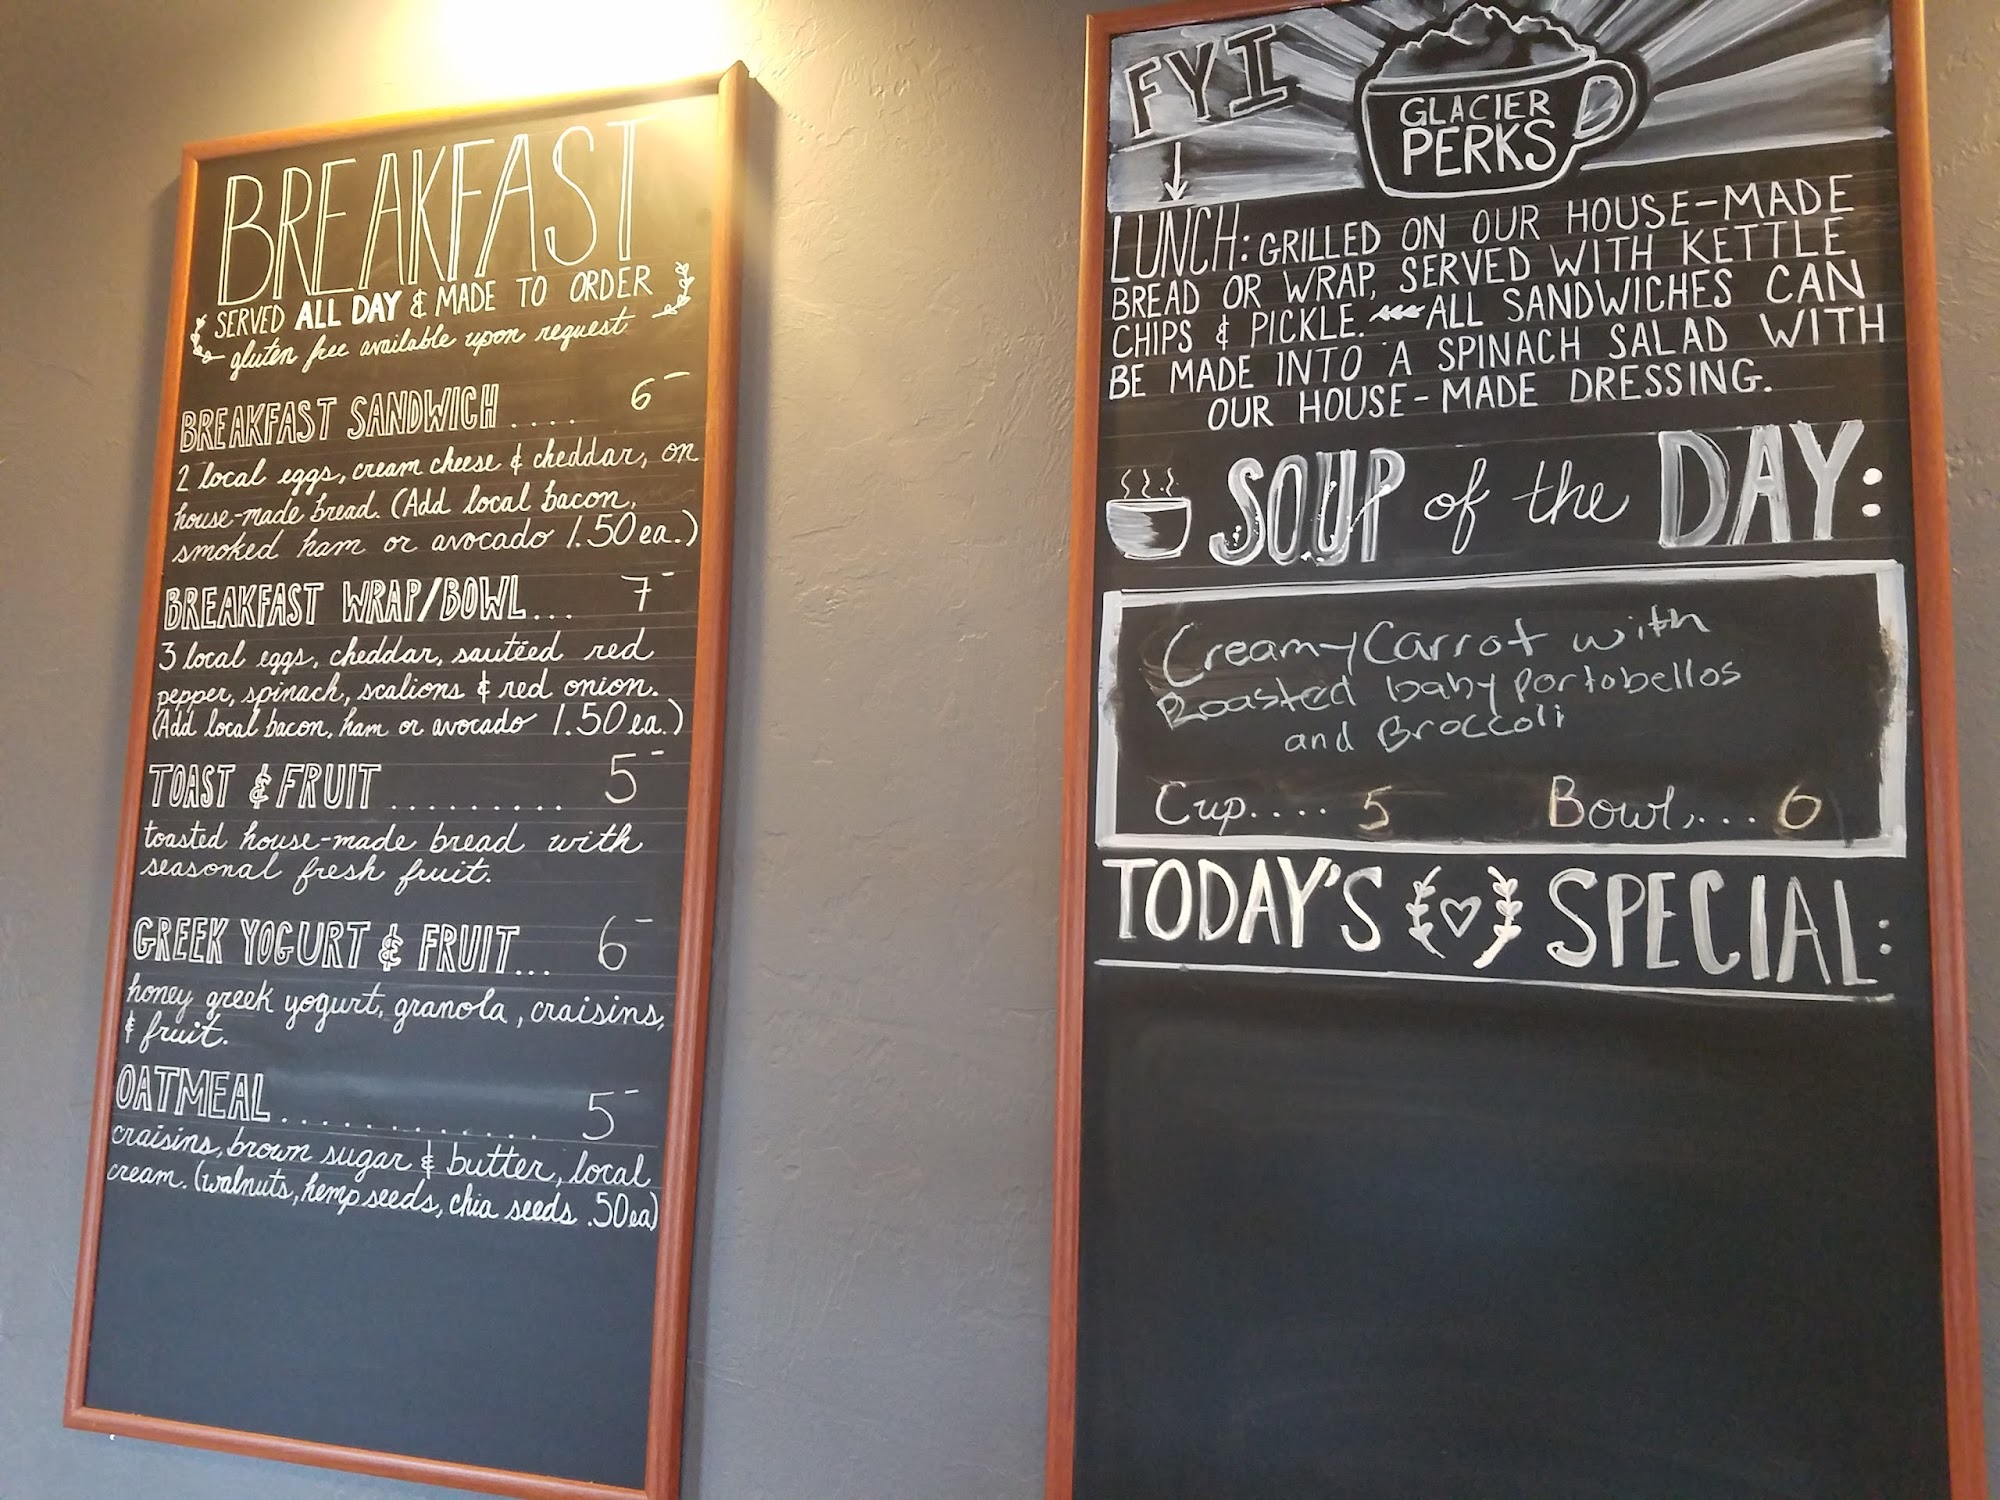 BREAKFAST
SERVED ALL DAY & MADE TO ORDER
gluten free available upon request
BREAKFAST SANDWICH .... 6-
2 local eggs, cream cheese & cheddar, on
house-made bread. (Add local bacon,
smoked ham or avocado 1.50 ea.)
BREAKFAST WRAP/BOWL... 7-
3 local eggs, cheddar, sautéed red
pepper, spinach, scalions & red onion.
(Add local bacon, ham or avocado 1.50 ea.)
TOAST & FRUIT ......... 5-
toasted house-made bread with
seasonal fresh fruit.
GREEK YOGURT & FRUIT... 6-
honey greek yogurt, granola, craisins,
& fruit.
OATMEAL ............ 5-
craisins, brown sugar & butter, local
cream. (walnuts, hemp seeds, chia seeds .50 ea)
FYI
GLACIER
PERKS
LUNCH: GRILLED ON OUR HOUSE-MADE
BREAD OR WRAP, SERVED WITH KETTLE
CHIPS & PICKLE. ALL SANDWICHES CAN
BE MADE INTO A SPINACH SALAD WITH
OUR HOUSE-MADE DRESSING.
SOUP of the DAY:
Creamy Carrot with
Roasted baby portobellos
and Broccoli
Cup.... 5 Bowl.... 6
TODAY'S SPECIAL: